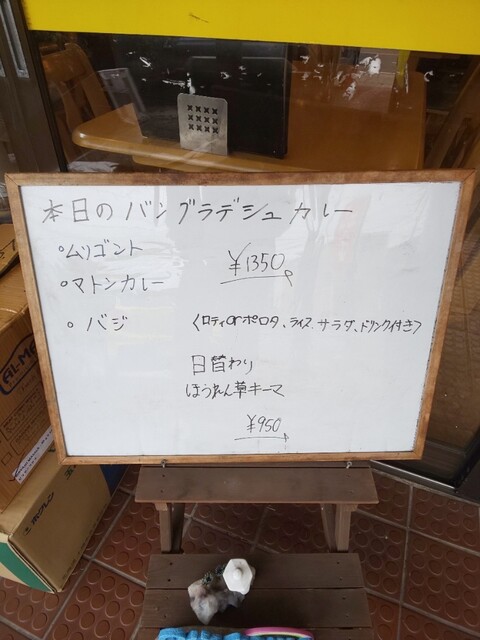 本日のバングラデシュカレー
•ムリゴント
•マトンカレー
¥1350
•バジ
<ロティorポロタ、ライス、サラダ、ドリンク付き>
日替わり
ほうれん草キーマ
¥950